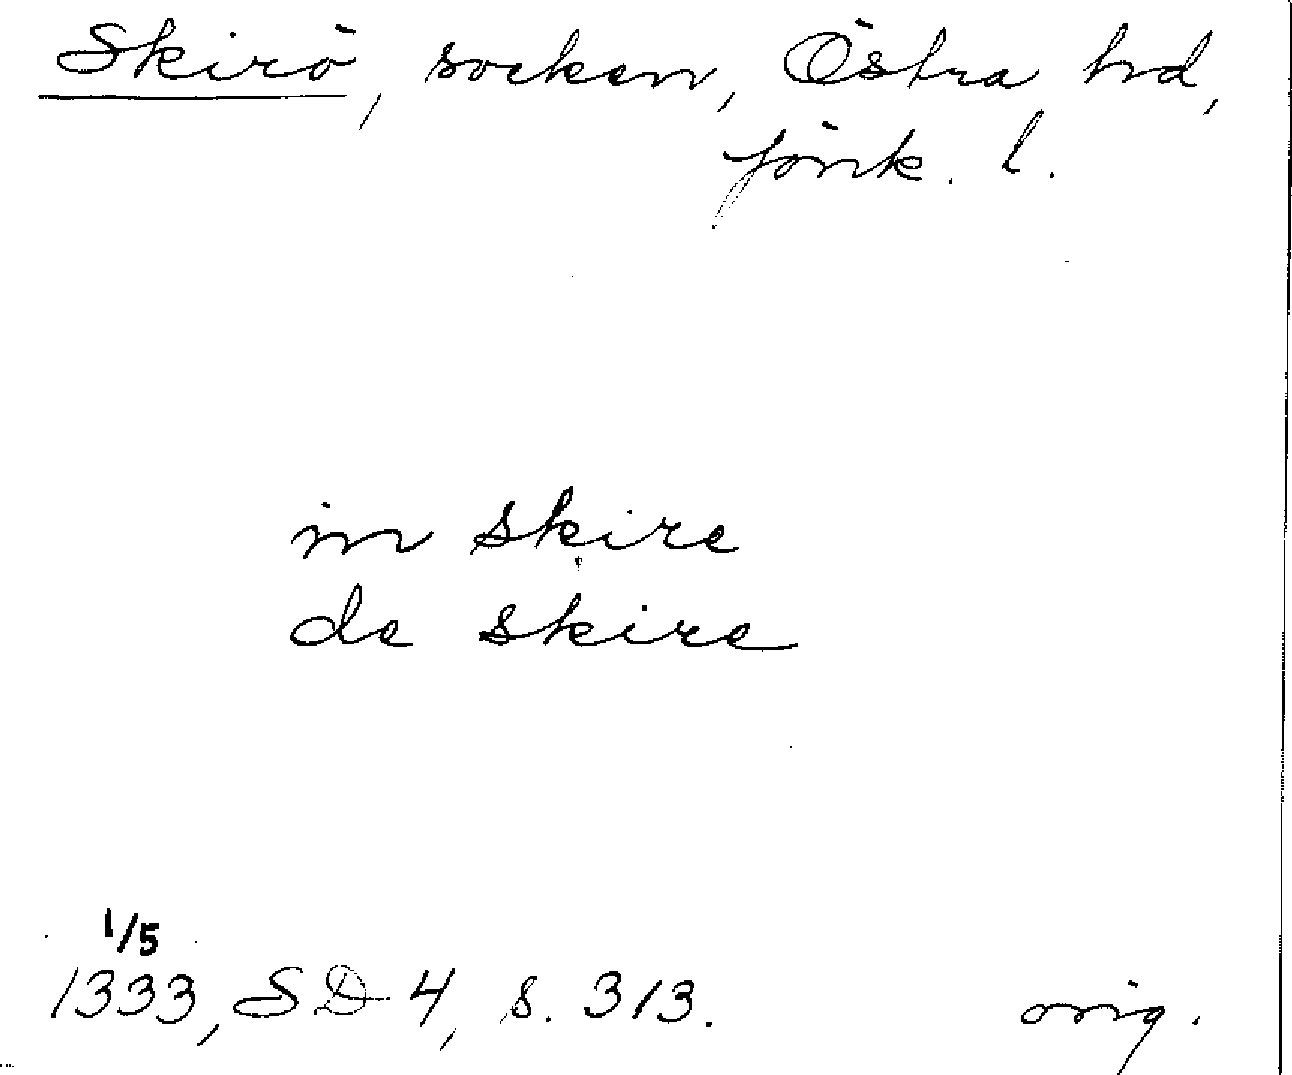 Skirö, socken, Östra hd,
Jönk. l.
in skire
de skire
1/5
1333, SD 4, s. 313. orig.